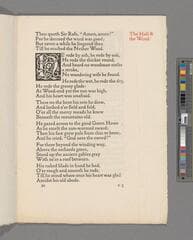 Thou quoth Sir Rafe, "Amen, amen!"
For he deemed the word was good;
But never a while he lingered then
Till he reached the Nether Wood.
He rode by ash, he rode by oak,
He rode the thicket round,
And heard no woodman strike
a stroke,
No wandering wife he found.
He rode the wet, he rode the dry,
He rode the grassy glade:
At Wood-end yet the sun was high,
And his heart was unafraid.
There on the bent his rein he drew,
And looked o'er field and fold,
O'er all the merry meads he knew
Beneath the mountains old.
He gazed across to the good Green Howe
As he smelt the sun-warmed sward;
Then his face grew pale from chin to brow,
And he cried, "God save the sword!"
For there beyond the winding way,
Above the orchards green,
Stood up the ancient gables grey
With ne'er a roof between.
His naked blade in hand he had,
O'er rough and smooth he rode,
Till he stood where once his heart was glad
Amidst his old abode.
The Hall &
the Wood